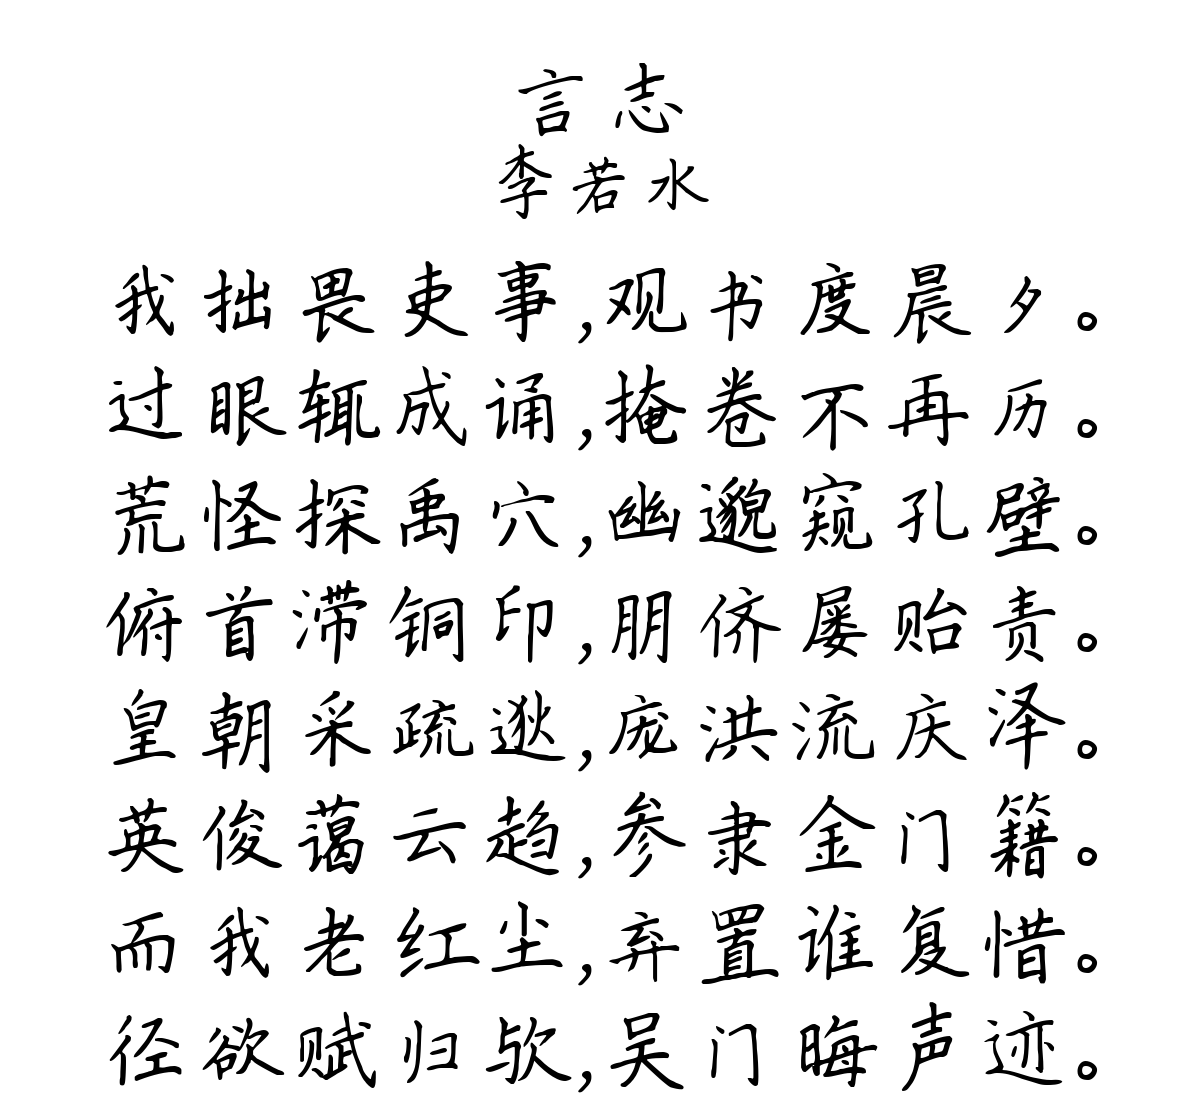 言志
李若水
我拙畏吏事,观书度晨夕。
过眼辄成诵,掩卷不再历。
荒怪探禹穴,幽邈窥孔壁。
俯首滞铜印,朋侪屡贻责。
皇朝采疏逖,庞洪流庆泽。
英俊蔼云趋,参隶金门籍。
而我老红尘,弃置谁复惜。
径欲赋归欤,吴门晦声迹。